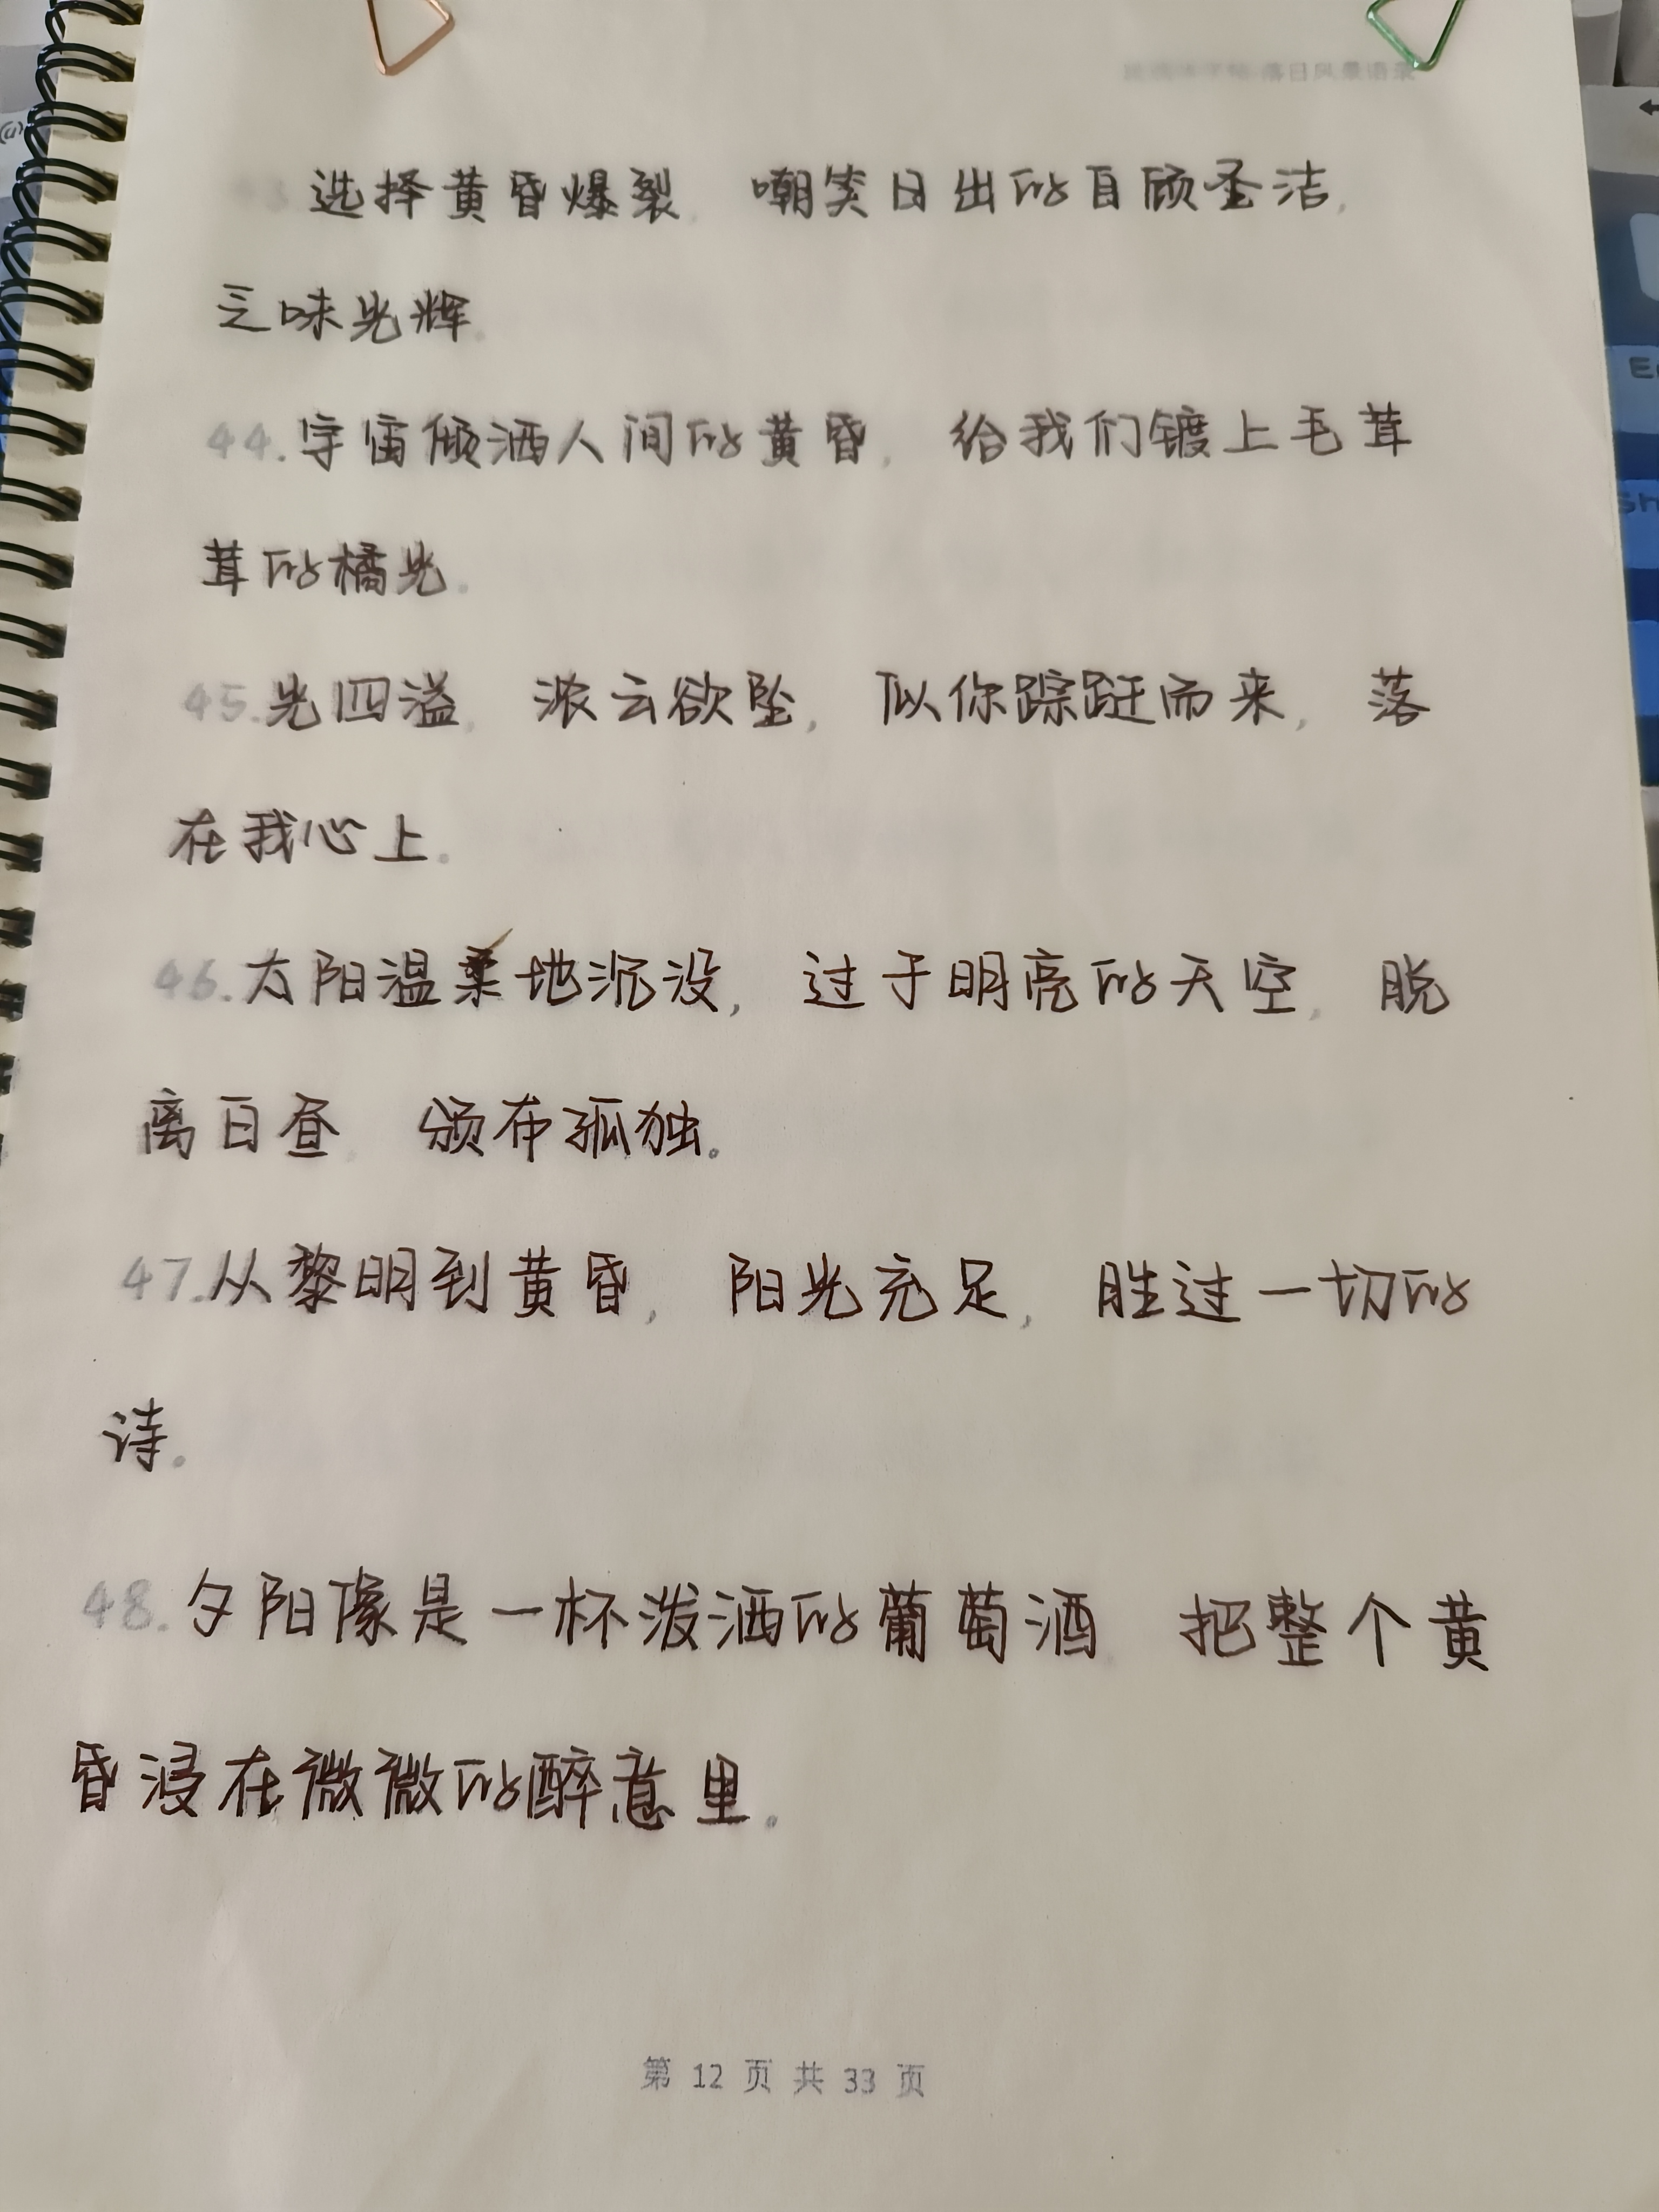 43.选择黄昏爆裂，嘲笑日出的自顾圣洁，
乏味光辉。
44.宇宙倾洒人间的黄昏，给我们镀上毛茸
茸的橘光。
45.光四溢，浓云欲坠，似你踪跹而来，落
在我心上。
46.太阳温柔地沉没，过于明亮的天空，脱
离日昼，颁布孤独。
47.从黎明到黄昏，阳光充足，胜过一切的
诗。
48.夕阳像是一杯泼洒的葡萄酒，把整个黄
昏浸在微微的醉意里。
第 12 页 共 33 页